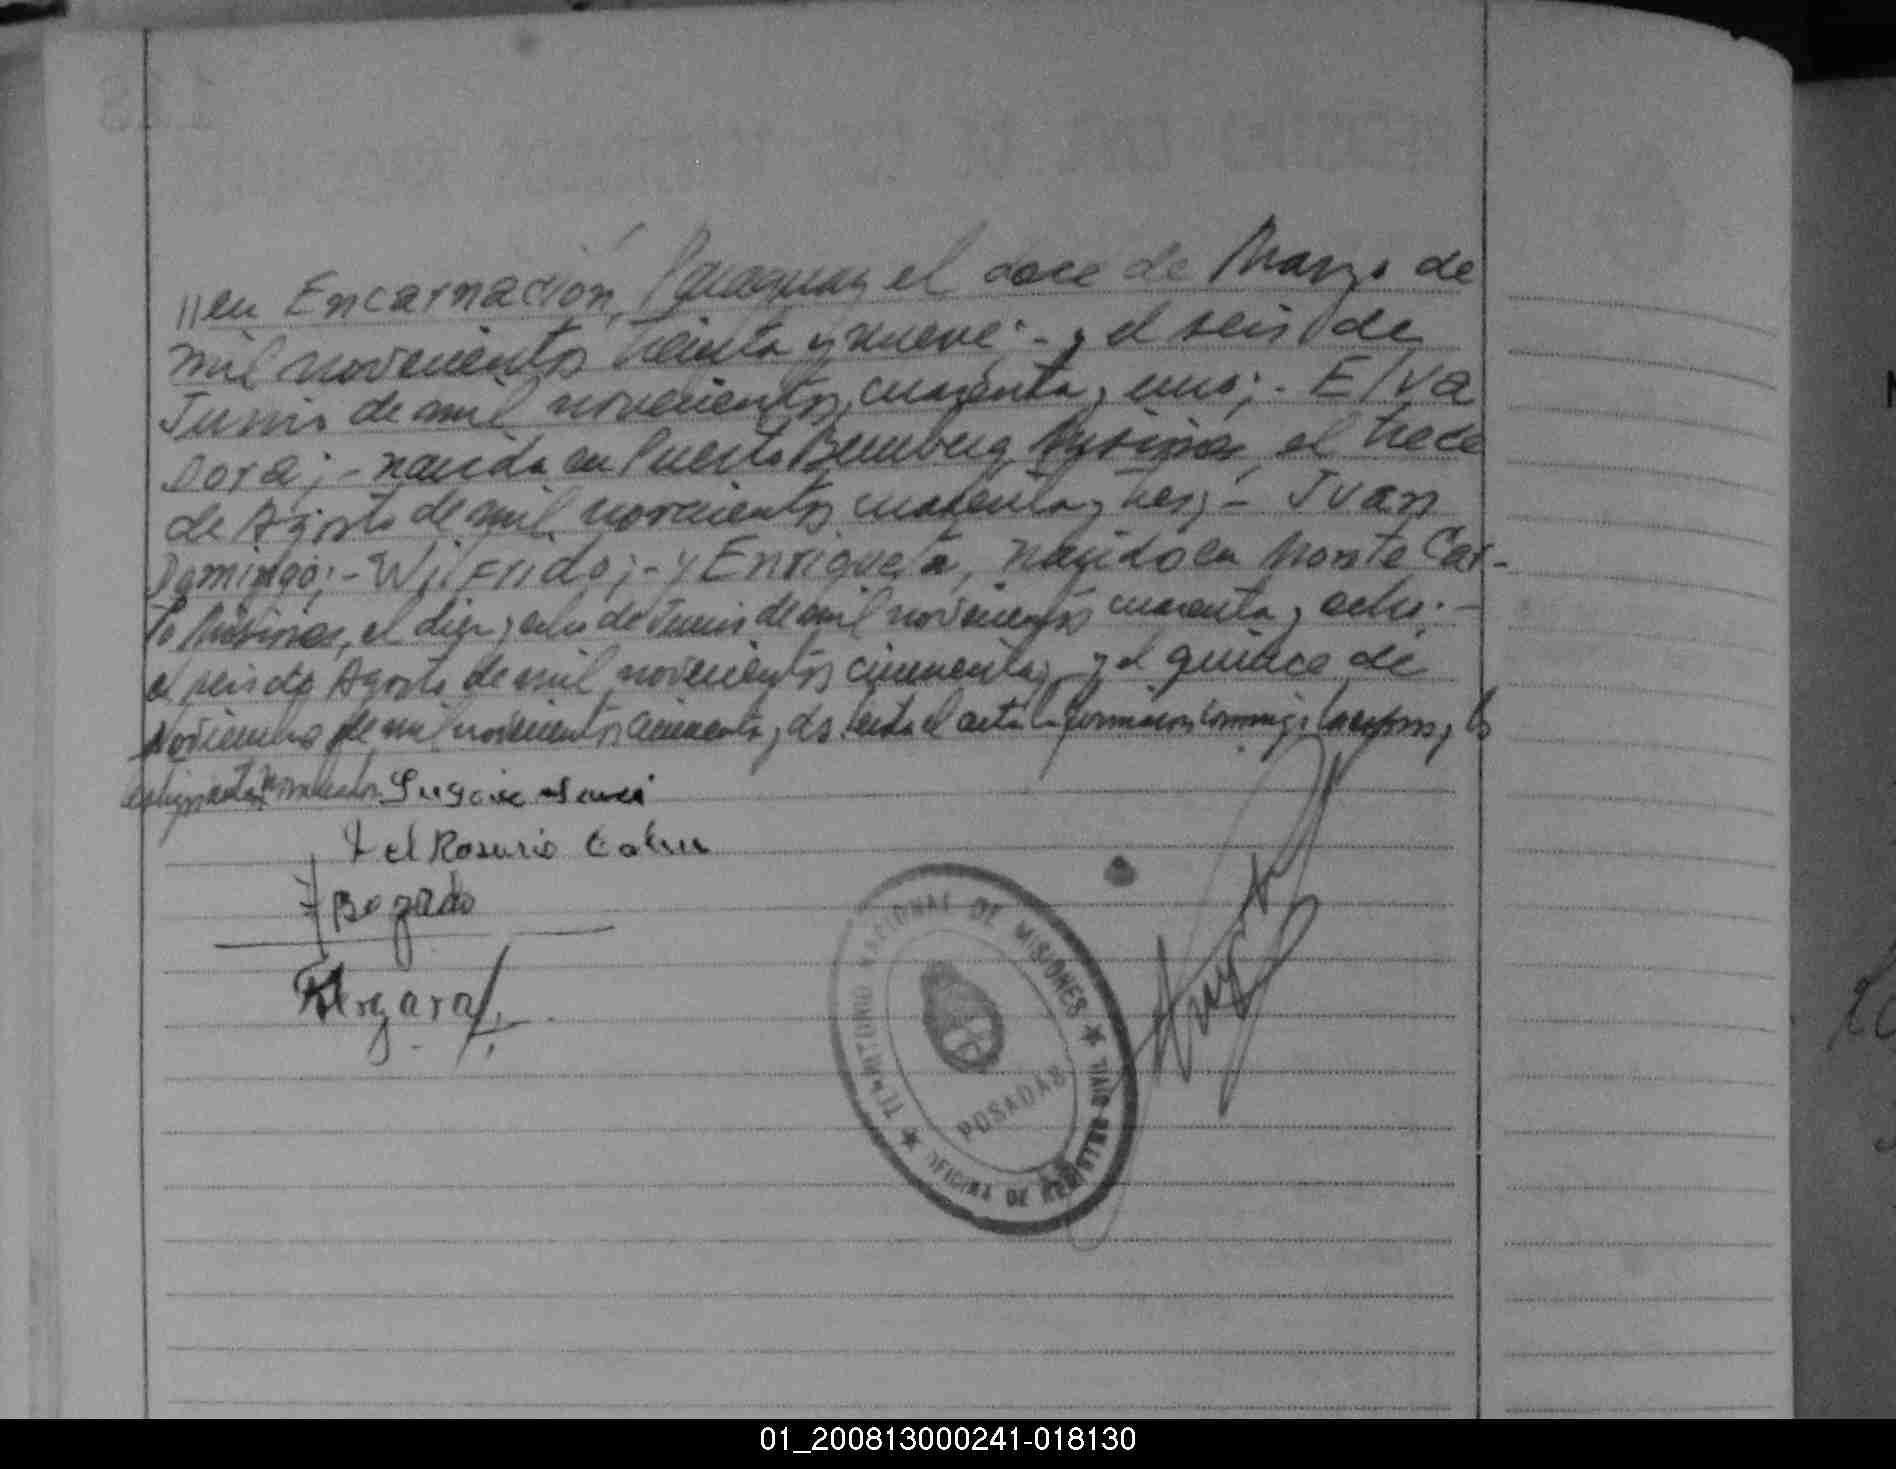 //en Encarnación, Paraguay el doce de Marzo de
mil novecientos treinta y nueve;- y el seis de
Junio de mil novecientos cuarenta y uno;- Elva
Dora;- nacida en Puerto Bemberg Misiones, el trece
de Agosto de mil novecientos cuarenta y tres;- Juan
Domingo;- Wilfrido;- y Enriqueta, nacido en Monte Car-
lo Misiones, el diez y ocho de Junio de mil novecientos cuarenta y ocho.-
el seis de Agosto de mil novecientos cincuenta; y el quince de
Noviembre de mil novecientos cincuenta y dos. Leida el acta la firmaron conmigo los esposos y los
testigos
del Rosario
Bogado
Vergara
TERRITORIO NACIONAL DE MISIONES ★ OFICINA DE REGISTRO CIVIL ★
POSADAS
01_200813000241-018130